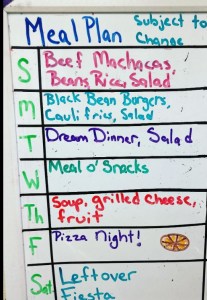 Meal Plan Subject to
Change
S Beef Machacas,
Beans, Rice, Salad
M Black Bean Burgers,
Cauli fries, Salad
T Dream Dinner, Salad
W Meal o' Snacks
Th Soup, grilled cheese,
fruit
F Pizza Night!
Sat Leftover
Fiesta